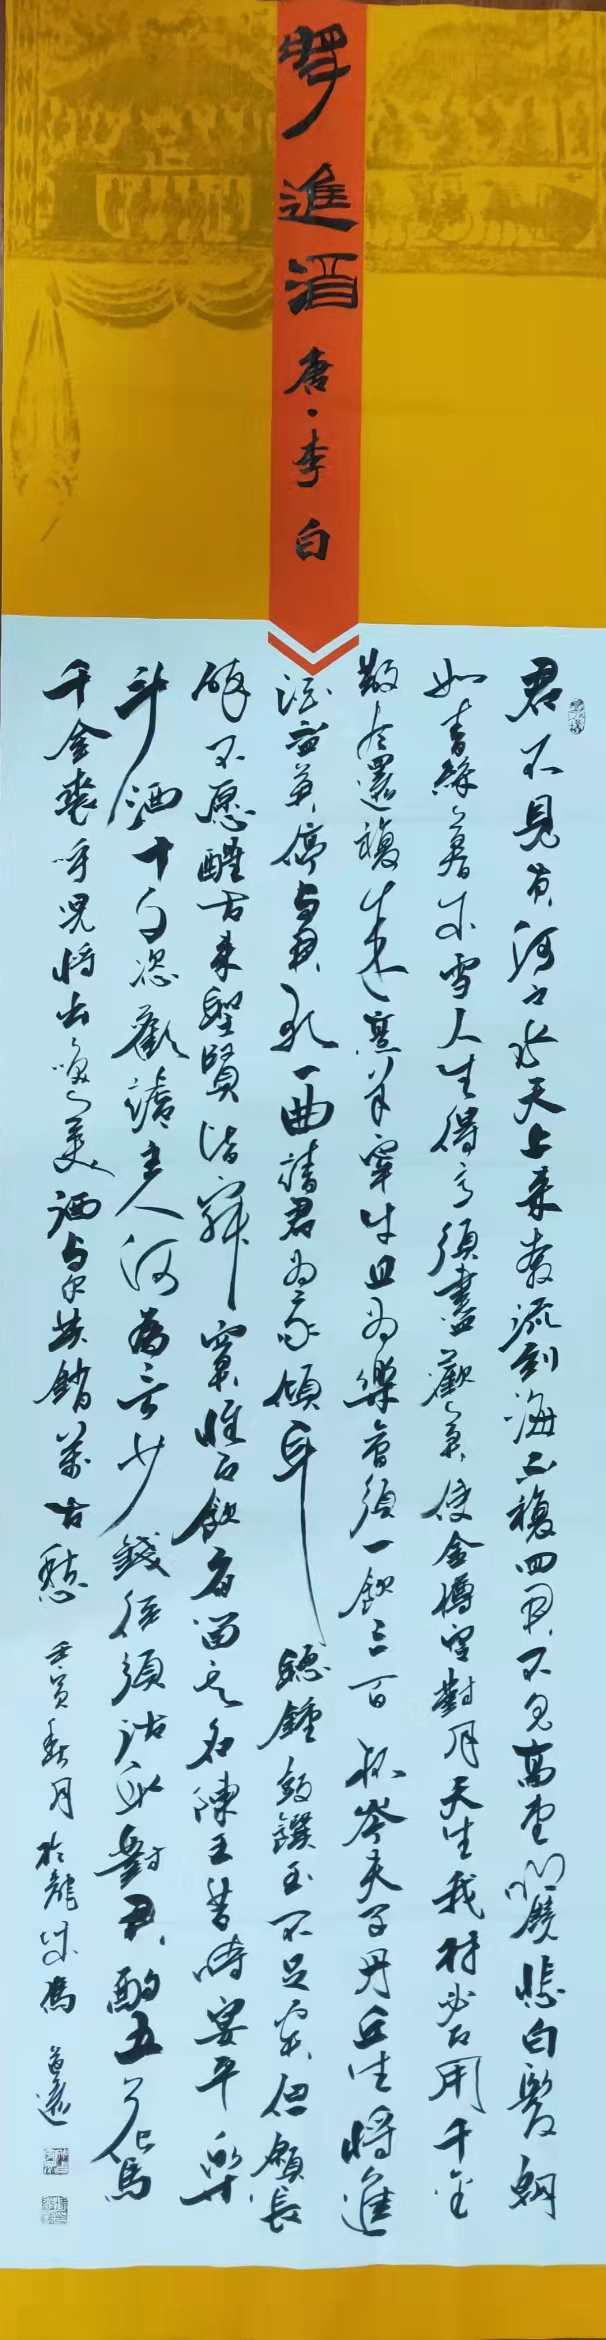 將進酒
唐·李白
君不見黄河之水天上來奔流到海不複回君不見高堂明鏡悲白髮朝
如青絲暮成雪人生得意須盡歡莫使金樽空對月天生我材必有用千金
散盡還複來烹羊宰牛且為樂會須一飲三百杯岑夫子丹丘生將進
酒盃莫停與君歌一曲請君為我傾耳聽鐘鼓饌玉不足貴但願長
醉不愿醒古來聖賢皆寂寞惟有飲者留其名陳王昔時宴平樂
斗酒十千恣歡謔主人何為言少錢徑須沽取對君酌五花馬
千金裘呼兒將出換美酒與爾共銷萬古愁 壬寅春月於龍城馮